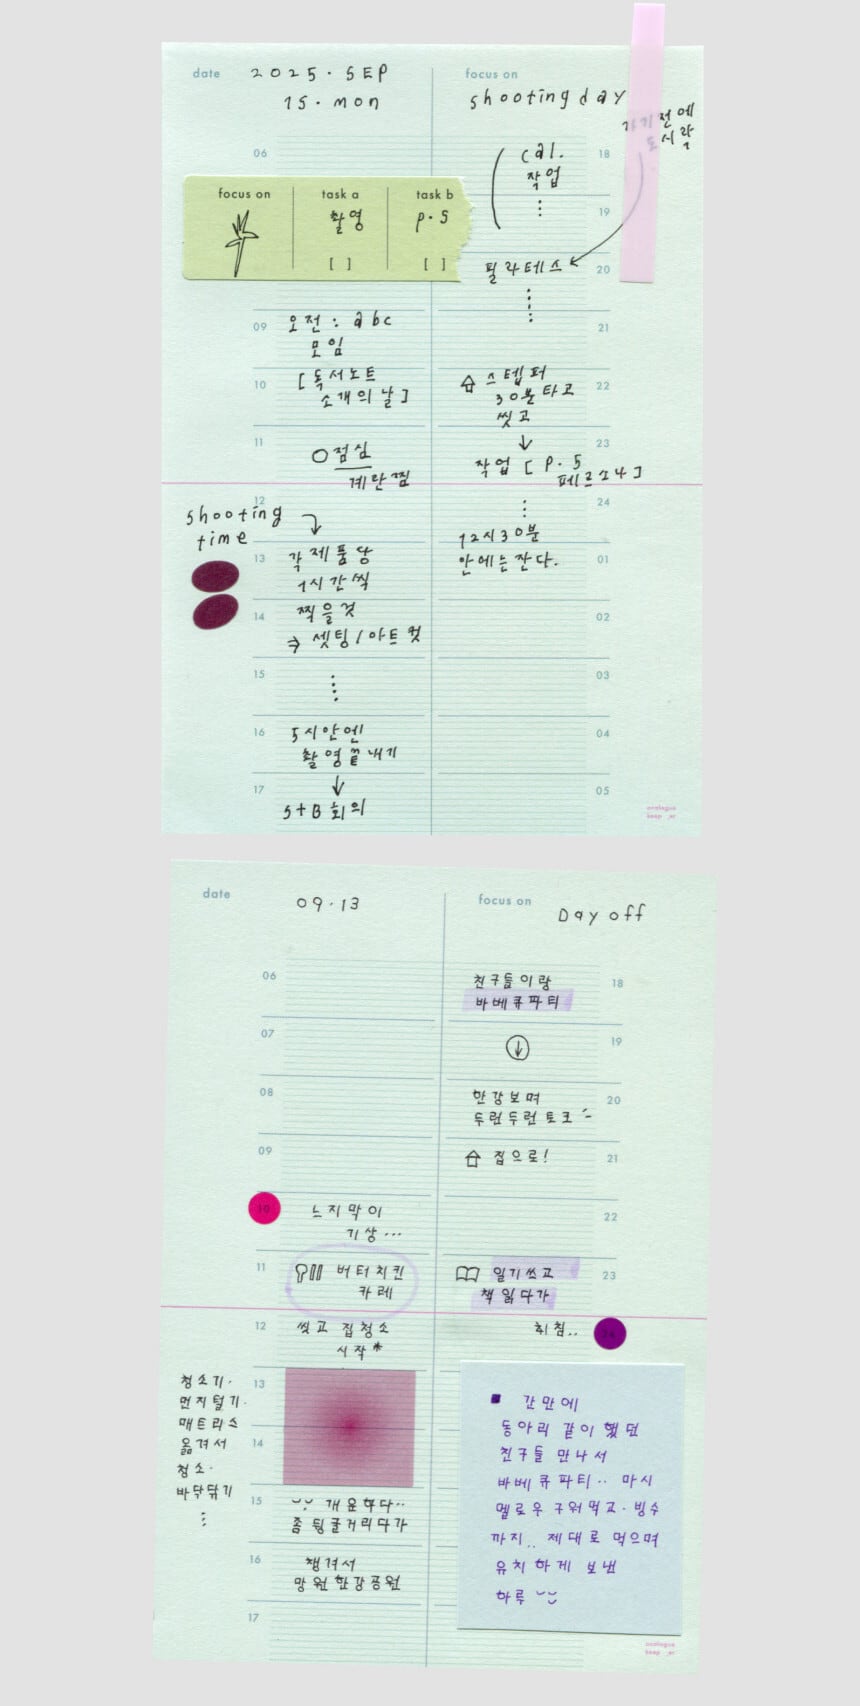 date
2025. SEP
15. mon
06
focus on
task a
task b
촬영
p.5
[ ]
[ ]
09
오전 : abc
모임
10
[ 독서노트
소개의 날 ]
11
점심
계란찜
12
shooting
time
13
각 제품당
1시간씩
14
찍을것
⇒ 셋팅 / 아트 컷
15
16
5시안엔
촬영 끝내기
17
↓
5+B 회의
focus on
shooting day
가기 전에
도시락
18
cal.
작업
19
20
필라테스
21
22
스텝퍼
30분 타고
씻고
↓
23
작업 [ p.5
페르소나 ]
24
12시 30분
안에는 잔다.
01
02
03
04
05
analogue
keep_er
date
09.13
06
07
08
09
10
느지막이
기상...
11
버터치킨
카레
12
씻고 집청소
시작*
청소기.
먼지털기.
매트리스
옮겨서
청소.
바닥닦기
13
14
15
개운하다..
좀 뒹굴거리다가
16
챙겨서
망원한강공원
17
focus on
Day off
친구들이랑
바베큐파티
18
↓
19
한강보며
두런두런 토크
20
집으로!
21
22
일기쓰고
책 읽다가
23
취침..
24
간만에
동아리 같이 했던
친구들 만나서
바베큐파티.. 마시
멜로우 구워먹고. 빙수
까지.. 제대로 먹으며
유치하게 보낸
하루
analogue
keep_er